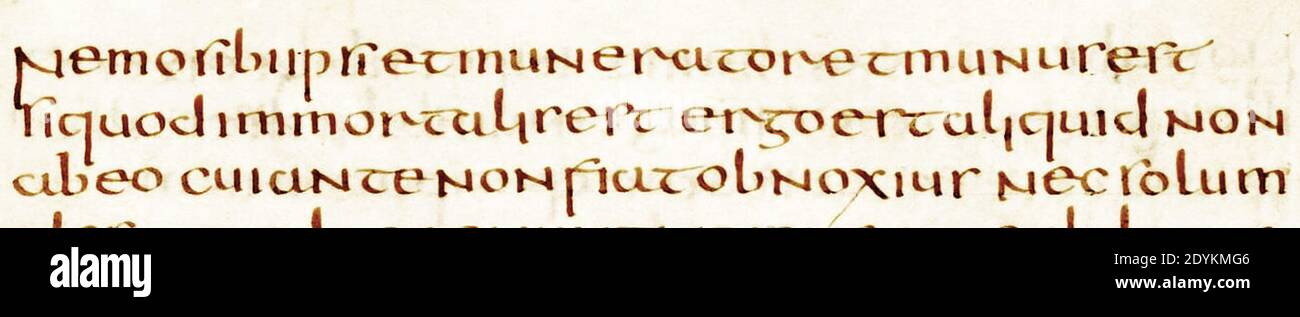 Nemosibiipsietmuneratoretmunusest
siquodimmortalisest ergoestaliquid non
abeo cuiantenonfiatobnoxius necsolum
alamy
Image ID: 2DYKMG6
www.alamy.com